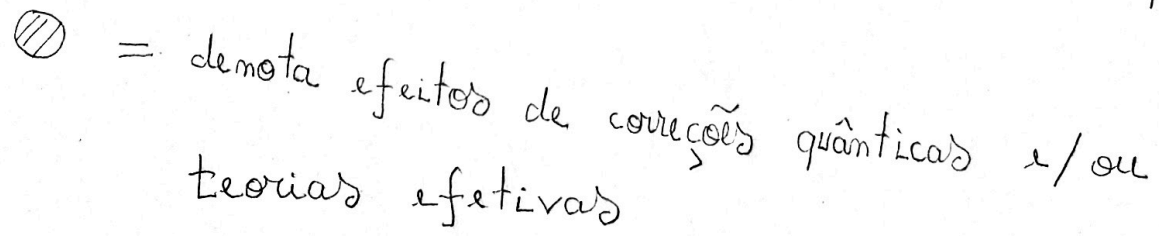 = denota efeitos de correções quânticas e/ou
teorias efetivas